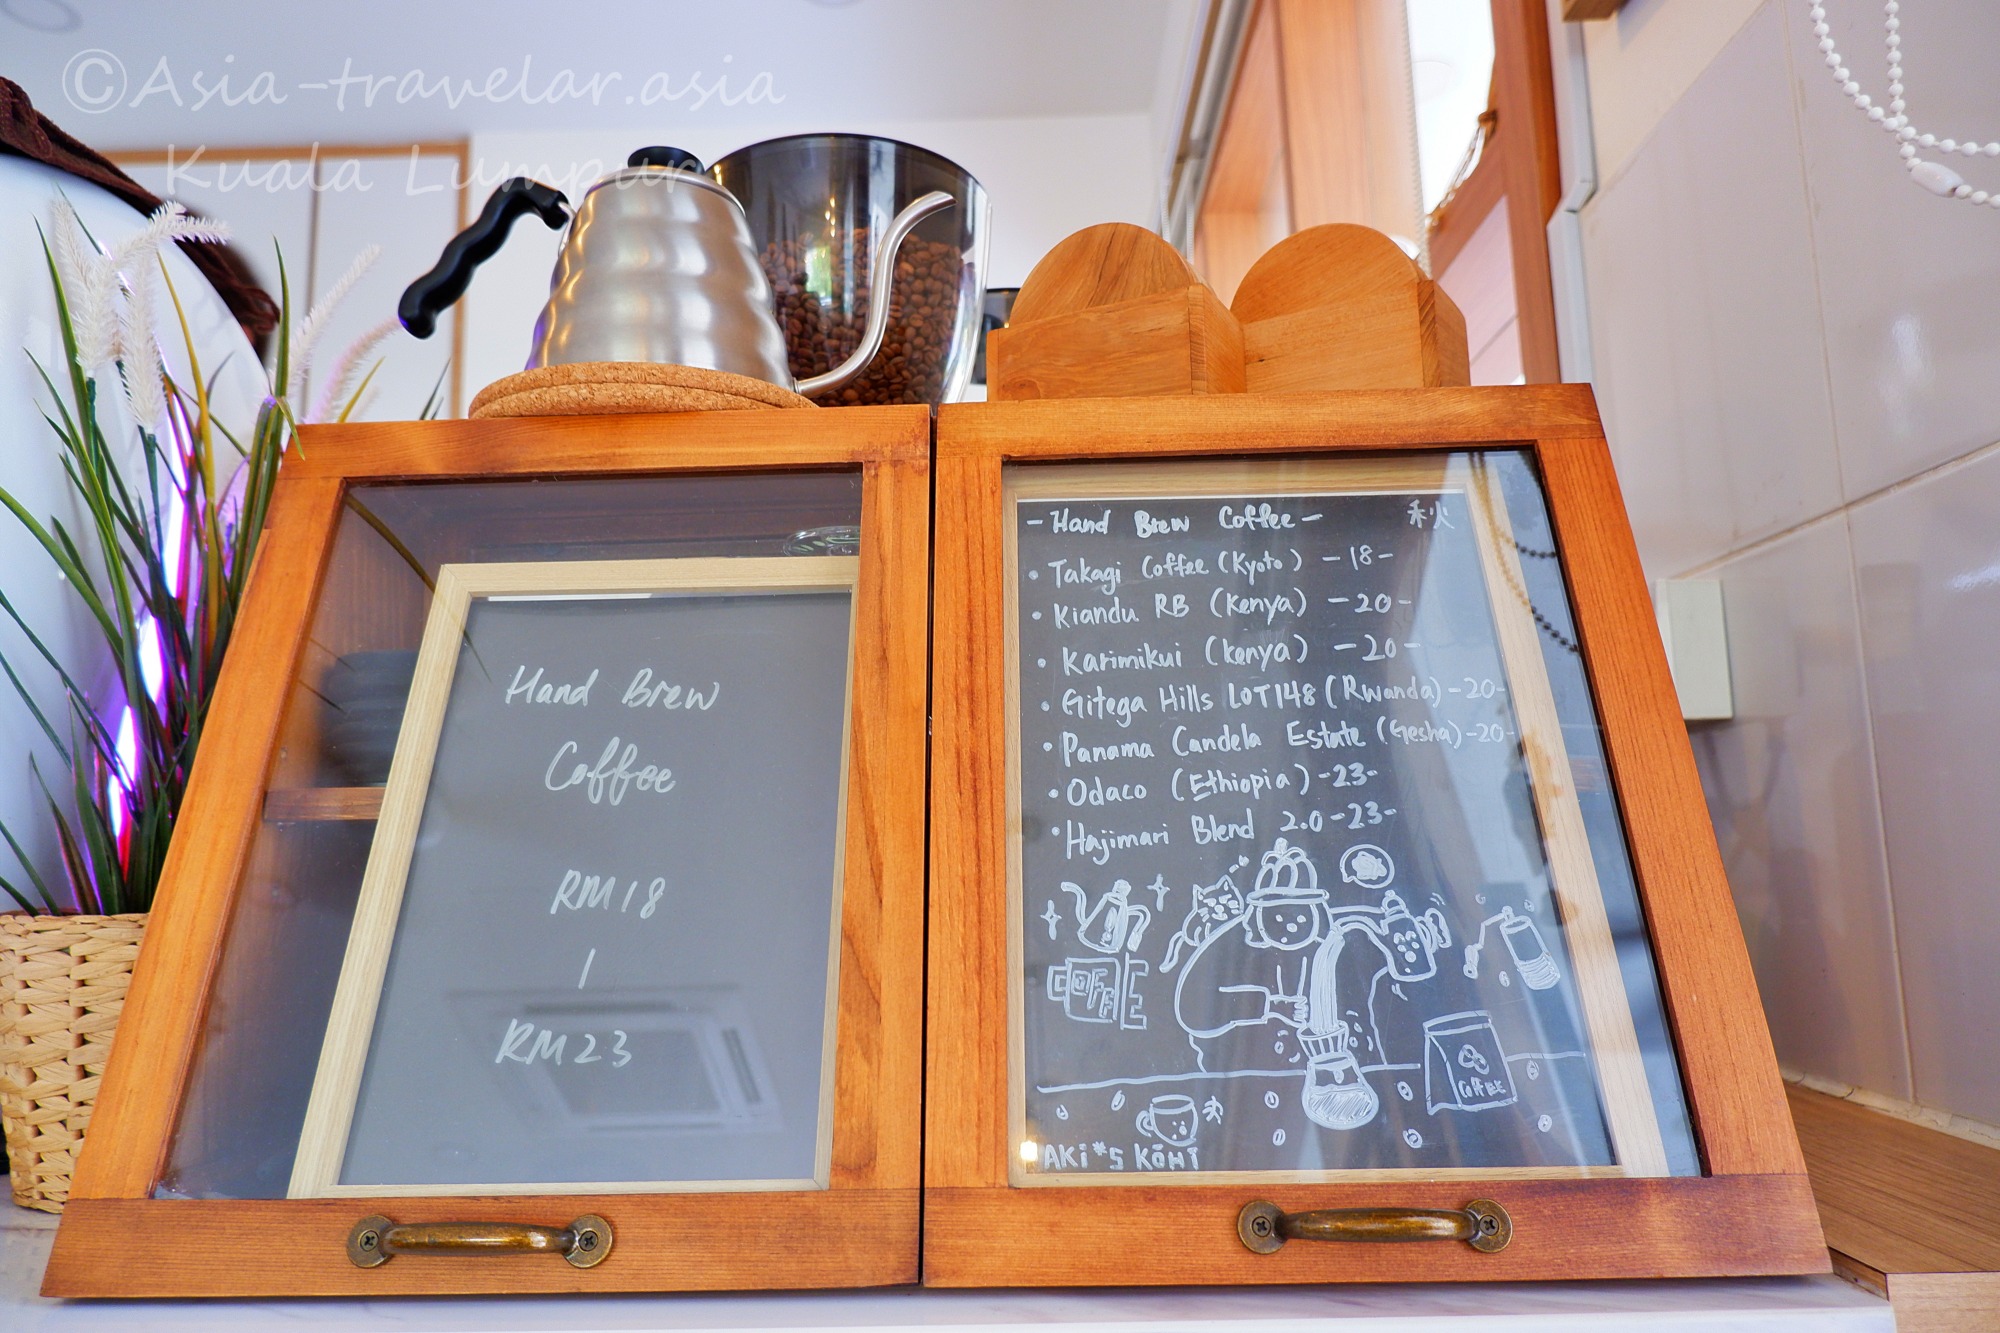 ©Asia-travelar.asia
Kuala Lumpur
Hand Brew
Coffee
RM18
/
RM23
-Hand Brew Coffee- 秋
• Takagi Coffee (Kyoto) -18-
• Kiandu RB (Kenya) -20-
• Karimikui (Kenya) -20-
• Gitega Hills LOT148 (Rwanda) -20-
• Panama Candela Estate (Gesha) -20-
• Odaco (Ethiopia) -23-
• Hajimari Blend 2.0 -23-
COFFEE
COFFEE
AKi*S KŌHI